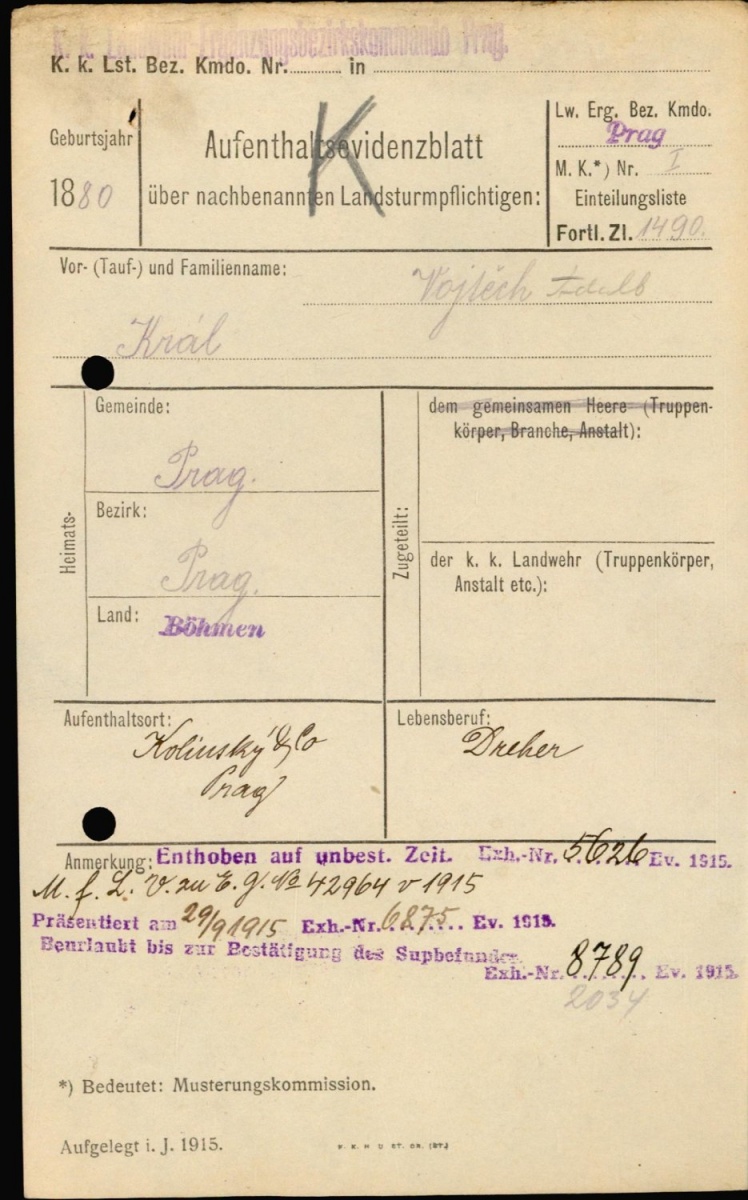 K. k. Landwehr-Ergänzungsbezirkskommando Prag.
K. k. Lst. Bez. Kmdo. Nr. in
Geburtsjahr
1880
Aufenthaltsevidenzblatt
über nachbenannten Landsturmpflichtigen:
K
Lw. Erg. Bez. Kmdo.
Prag
M. K.*) Nr. I
Einteilungsliste
Fortl. Zl. 1490.
Vor- (Tauf-) und Familienname:
Vojtěch Adalb
Král
Heimats-
Gemeinde:
Prag.
Bezirk:
Prag.
Land: Böhmen
Zugeteilt:
dem gemeinsamen Heere (Truppen-
körper, Branche, Anstalt):
der k. k. Landwehr (Truppenkörper,
Anstalt etc.):
Aufenthaltsort:
Kolinský & Co
Prag
Lebensberuf:
Dreher
Anmerkung: Enthoben auf unbest. Zeit. Exh.-Nr. 5626 Ev. 1915.
M. f. L. V. zu E. g. No 42964 v 1915
Präsentiert am 29/9 1915 Exh.-Nr. 6875 Ev. 1915.
Beurlaubt bis zur Bestätigung des Supbefundes.
Exh.-Nr. 8789 Ev. 1915.
2034
*) Bedeutet: Musterungskommission.
Aufgelegt i. J. 1915.